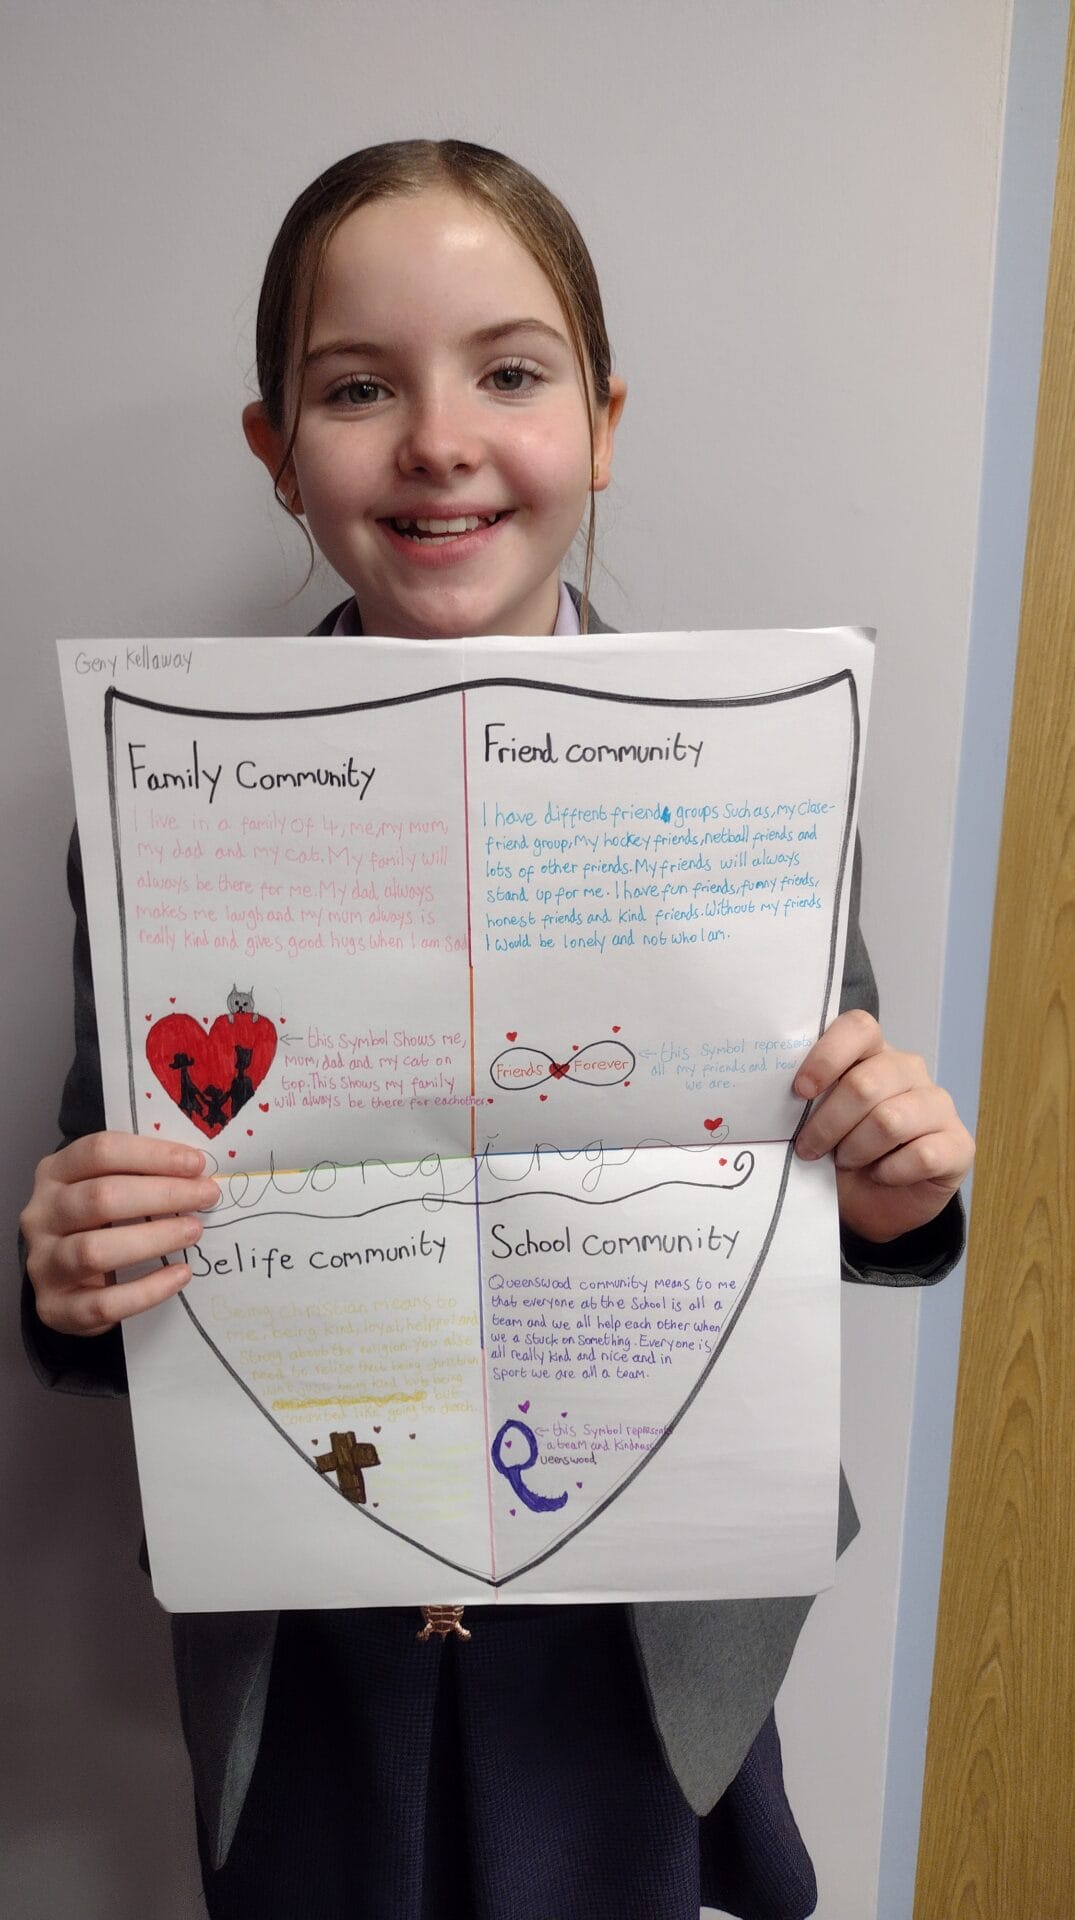 Geny Kellaway
Family Community
I live in a family of 4, me, my mum,
my dad and my cat. My family will
always be there for me. My dad always
makes me laugh and my mum always is
really kind and gives good hugs when I am sad
← this symbol shows me,
mum, dad and my cat on
top. This shows my family
will always be there for eachother.
Friend community
I have diffrent friend groups such as, my close-
friend group, my hockey friends, netball friends and
lots of other friends. My friends will always
stand up for me. I have fun friends, funny friends,
honest friends and kind friends. Without my friends
I would be lonely and not who I am.
Friends Forever
← this symbol represents
all my friends and how
we are.
Belonging
Belife community
Being christian means to
me, being kind, loyal, helpful and
strong about the religion. you also
need to relise that being christian
isn't just being kind but being
but
commited like going to church.
School community
Queenswood community means to me
that everyone at the school is all a
team and we all help each other when
we a stuck on something. Everyone is
all really kind and nice and in
sport we are all a team.
← this symbol represents
a team and kindness
Queenswood